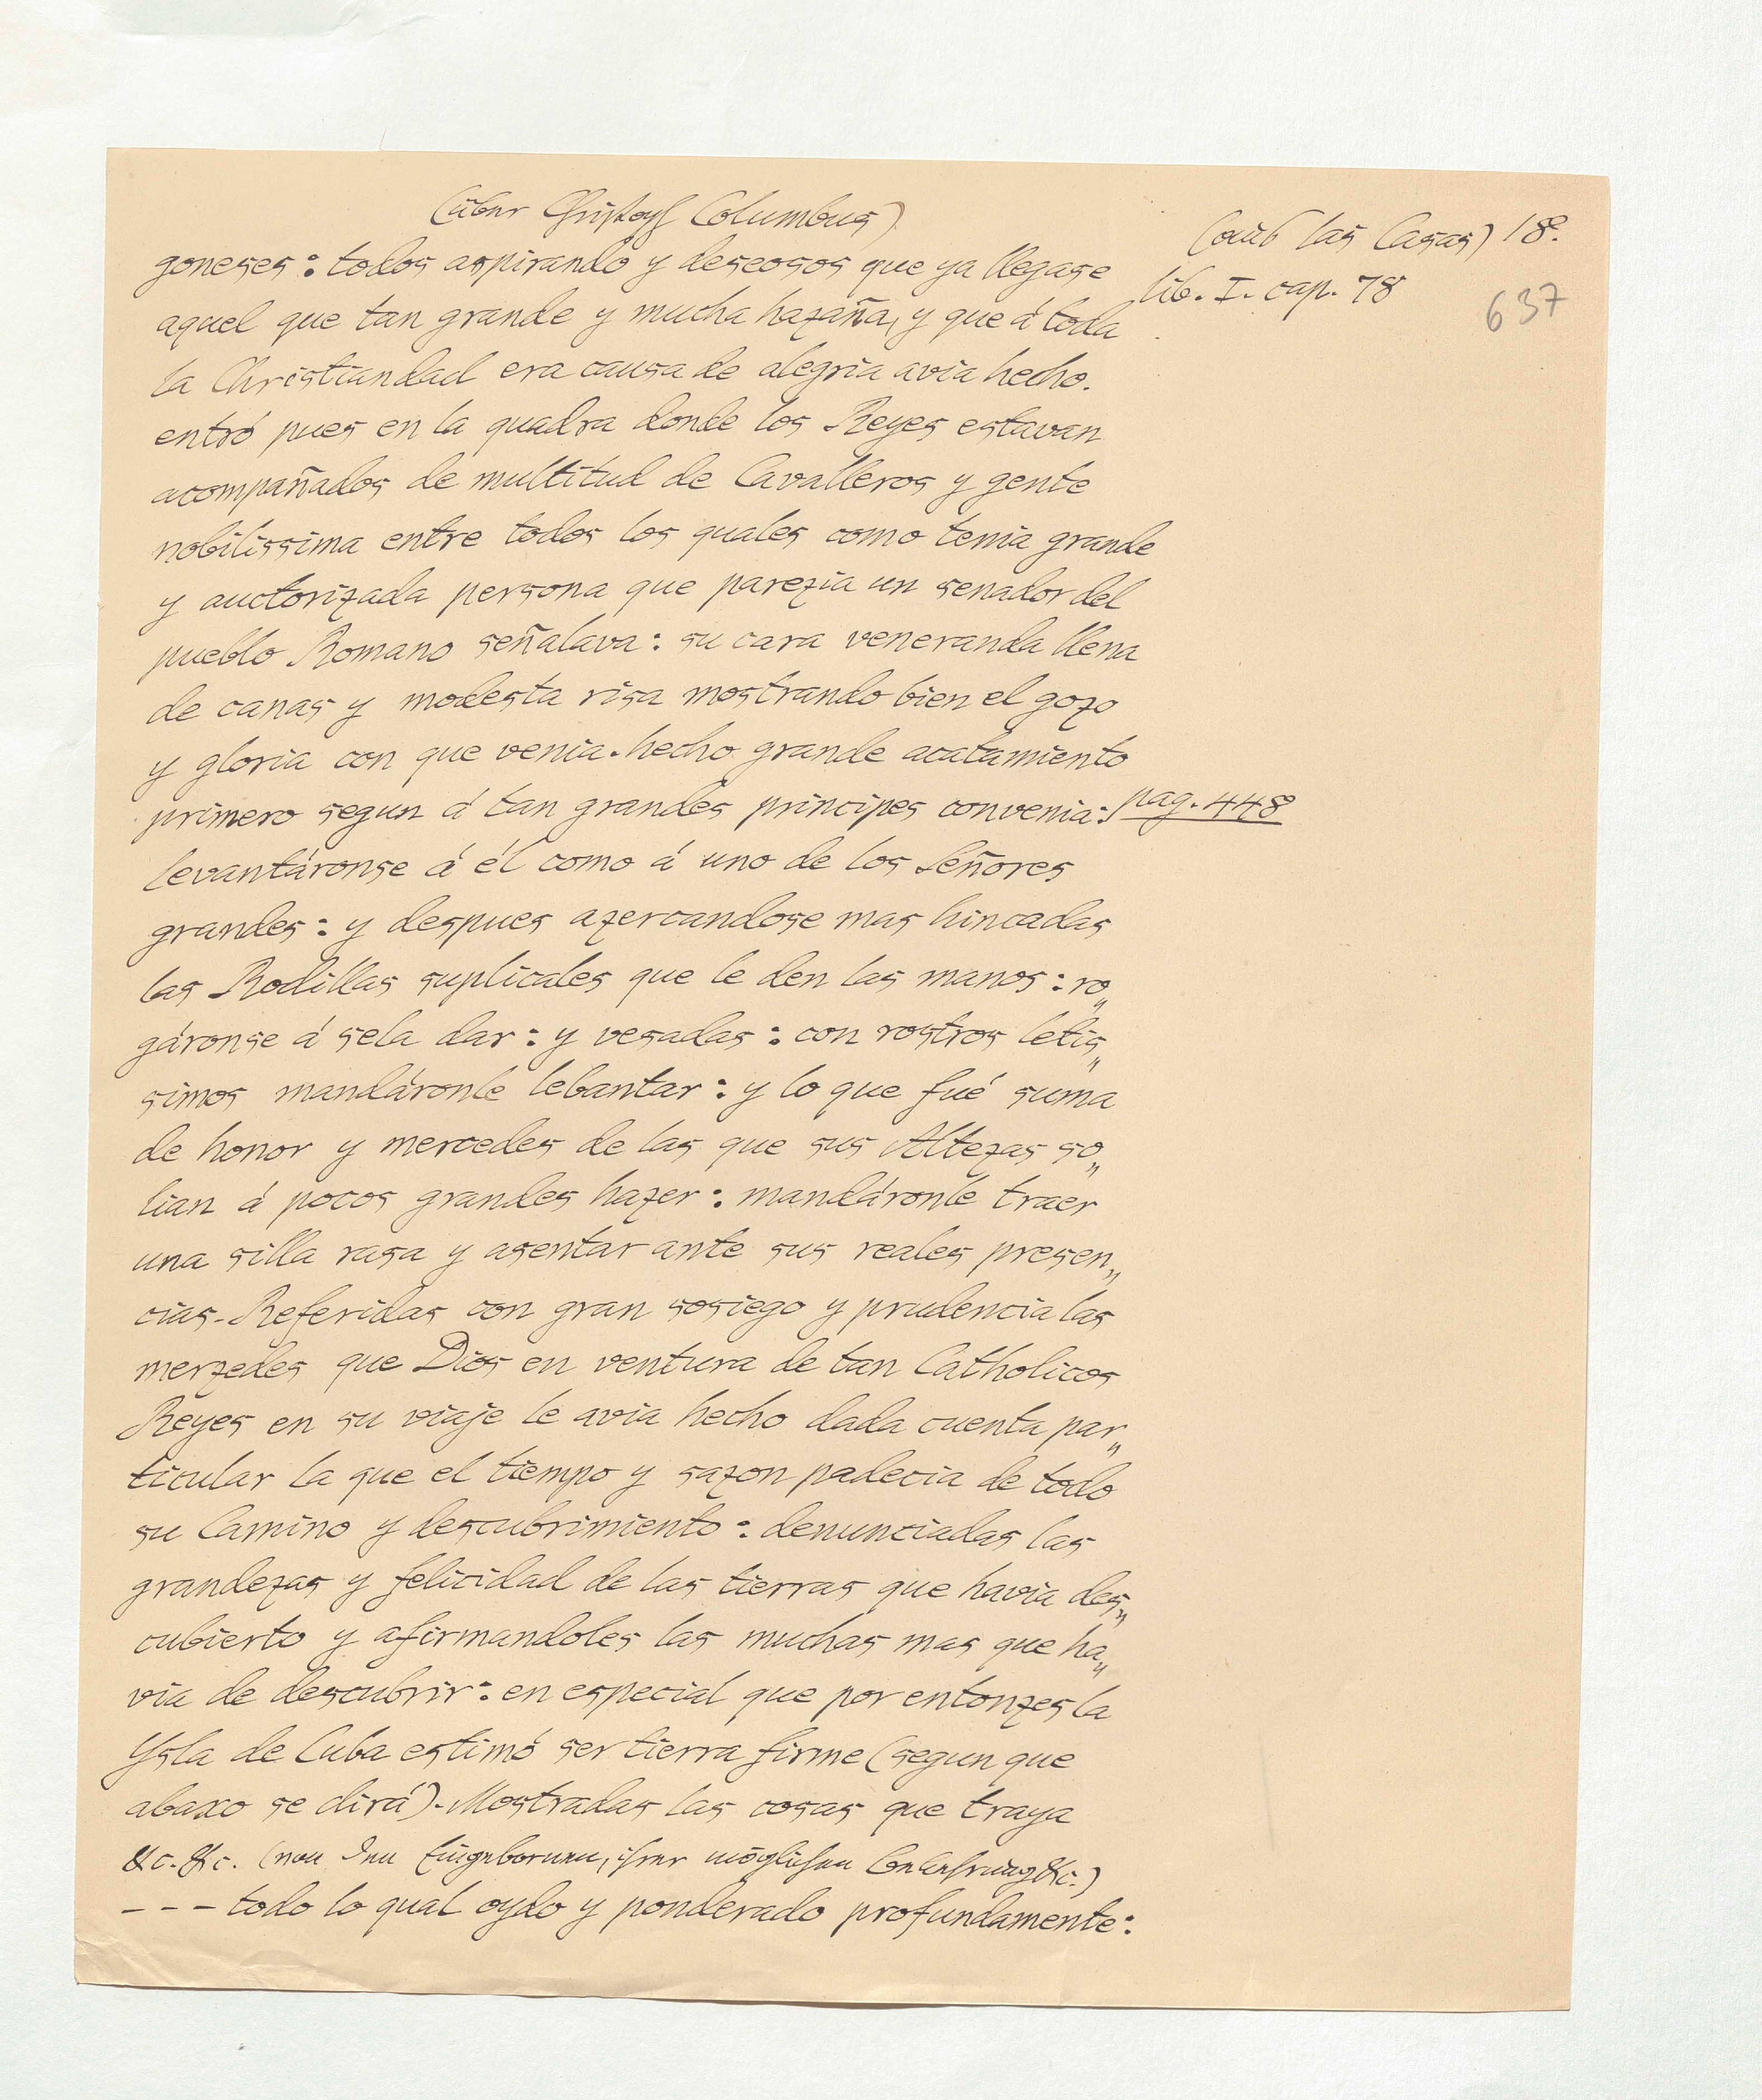 (über Christoph Columbus)
(aus las Casas) 18.
lib. I. cap. 78
637
goneses: todos aspirando y deseosos que ya llegase
aquel que tan grande y mucha hazaña, y que á toda
la Christiandad era causa de alegria avia hecho.
entró pues en la quadra donde los Reyes estavan
acompañados de multitud de Cavalleros y gente
nobilissima entre todos los quales como tenia grande
y auctorizada persona que parezia un senador del
pueblo Romano señalava: su cara veneranda llena
de canas y modesta risa mostrando bien el gozo
y gloria con que venia. hecho grande acatamiento
primero segun á tan grandes principes convenia: pag. 448
levantáronse á él como á uno de los Señores
grandes: y despues azercandose mas hincadas
las Rodillas suplicales que le den las manos: ro„
gáronse á sela dar: y vesadas: con rostros letis„
simos mandáronle lebantar: y lo que fué suma
de honor y mercedes de las que sus Altezas so„
lian á pocos grandes hazer: mandáronle traer
una silla rasa y asentar ante sus reales presen„
cias. Referidas con gran sosiego y prudencia las
merzedes que Dios en ventura de tan Catholicos
Reyes en su viaje le avia hecho dada cuenta par„
ticular la que el tiempo y sazon padecia de todo
su Camino y descubrimiento: denunciadas las
grandezas y felicidad de las tierras que havia des„
cubierto y afirmandoles las muchas mas que ha„
via de descubrir: en especial que por entonzes la
Ysla de Cuba estimó ser tierra firme (segun que
abaxo se dirá). Mostradas las cosas que traya
&c. &c. (von den Eingebornen, ihrer möglichen Bekehrung &c.)
--- todo lo qual oydo y ponderado profundamente: